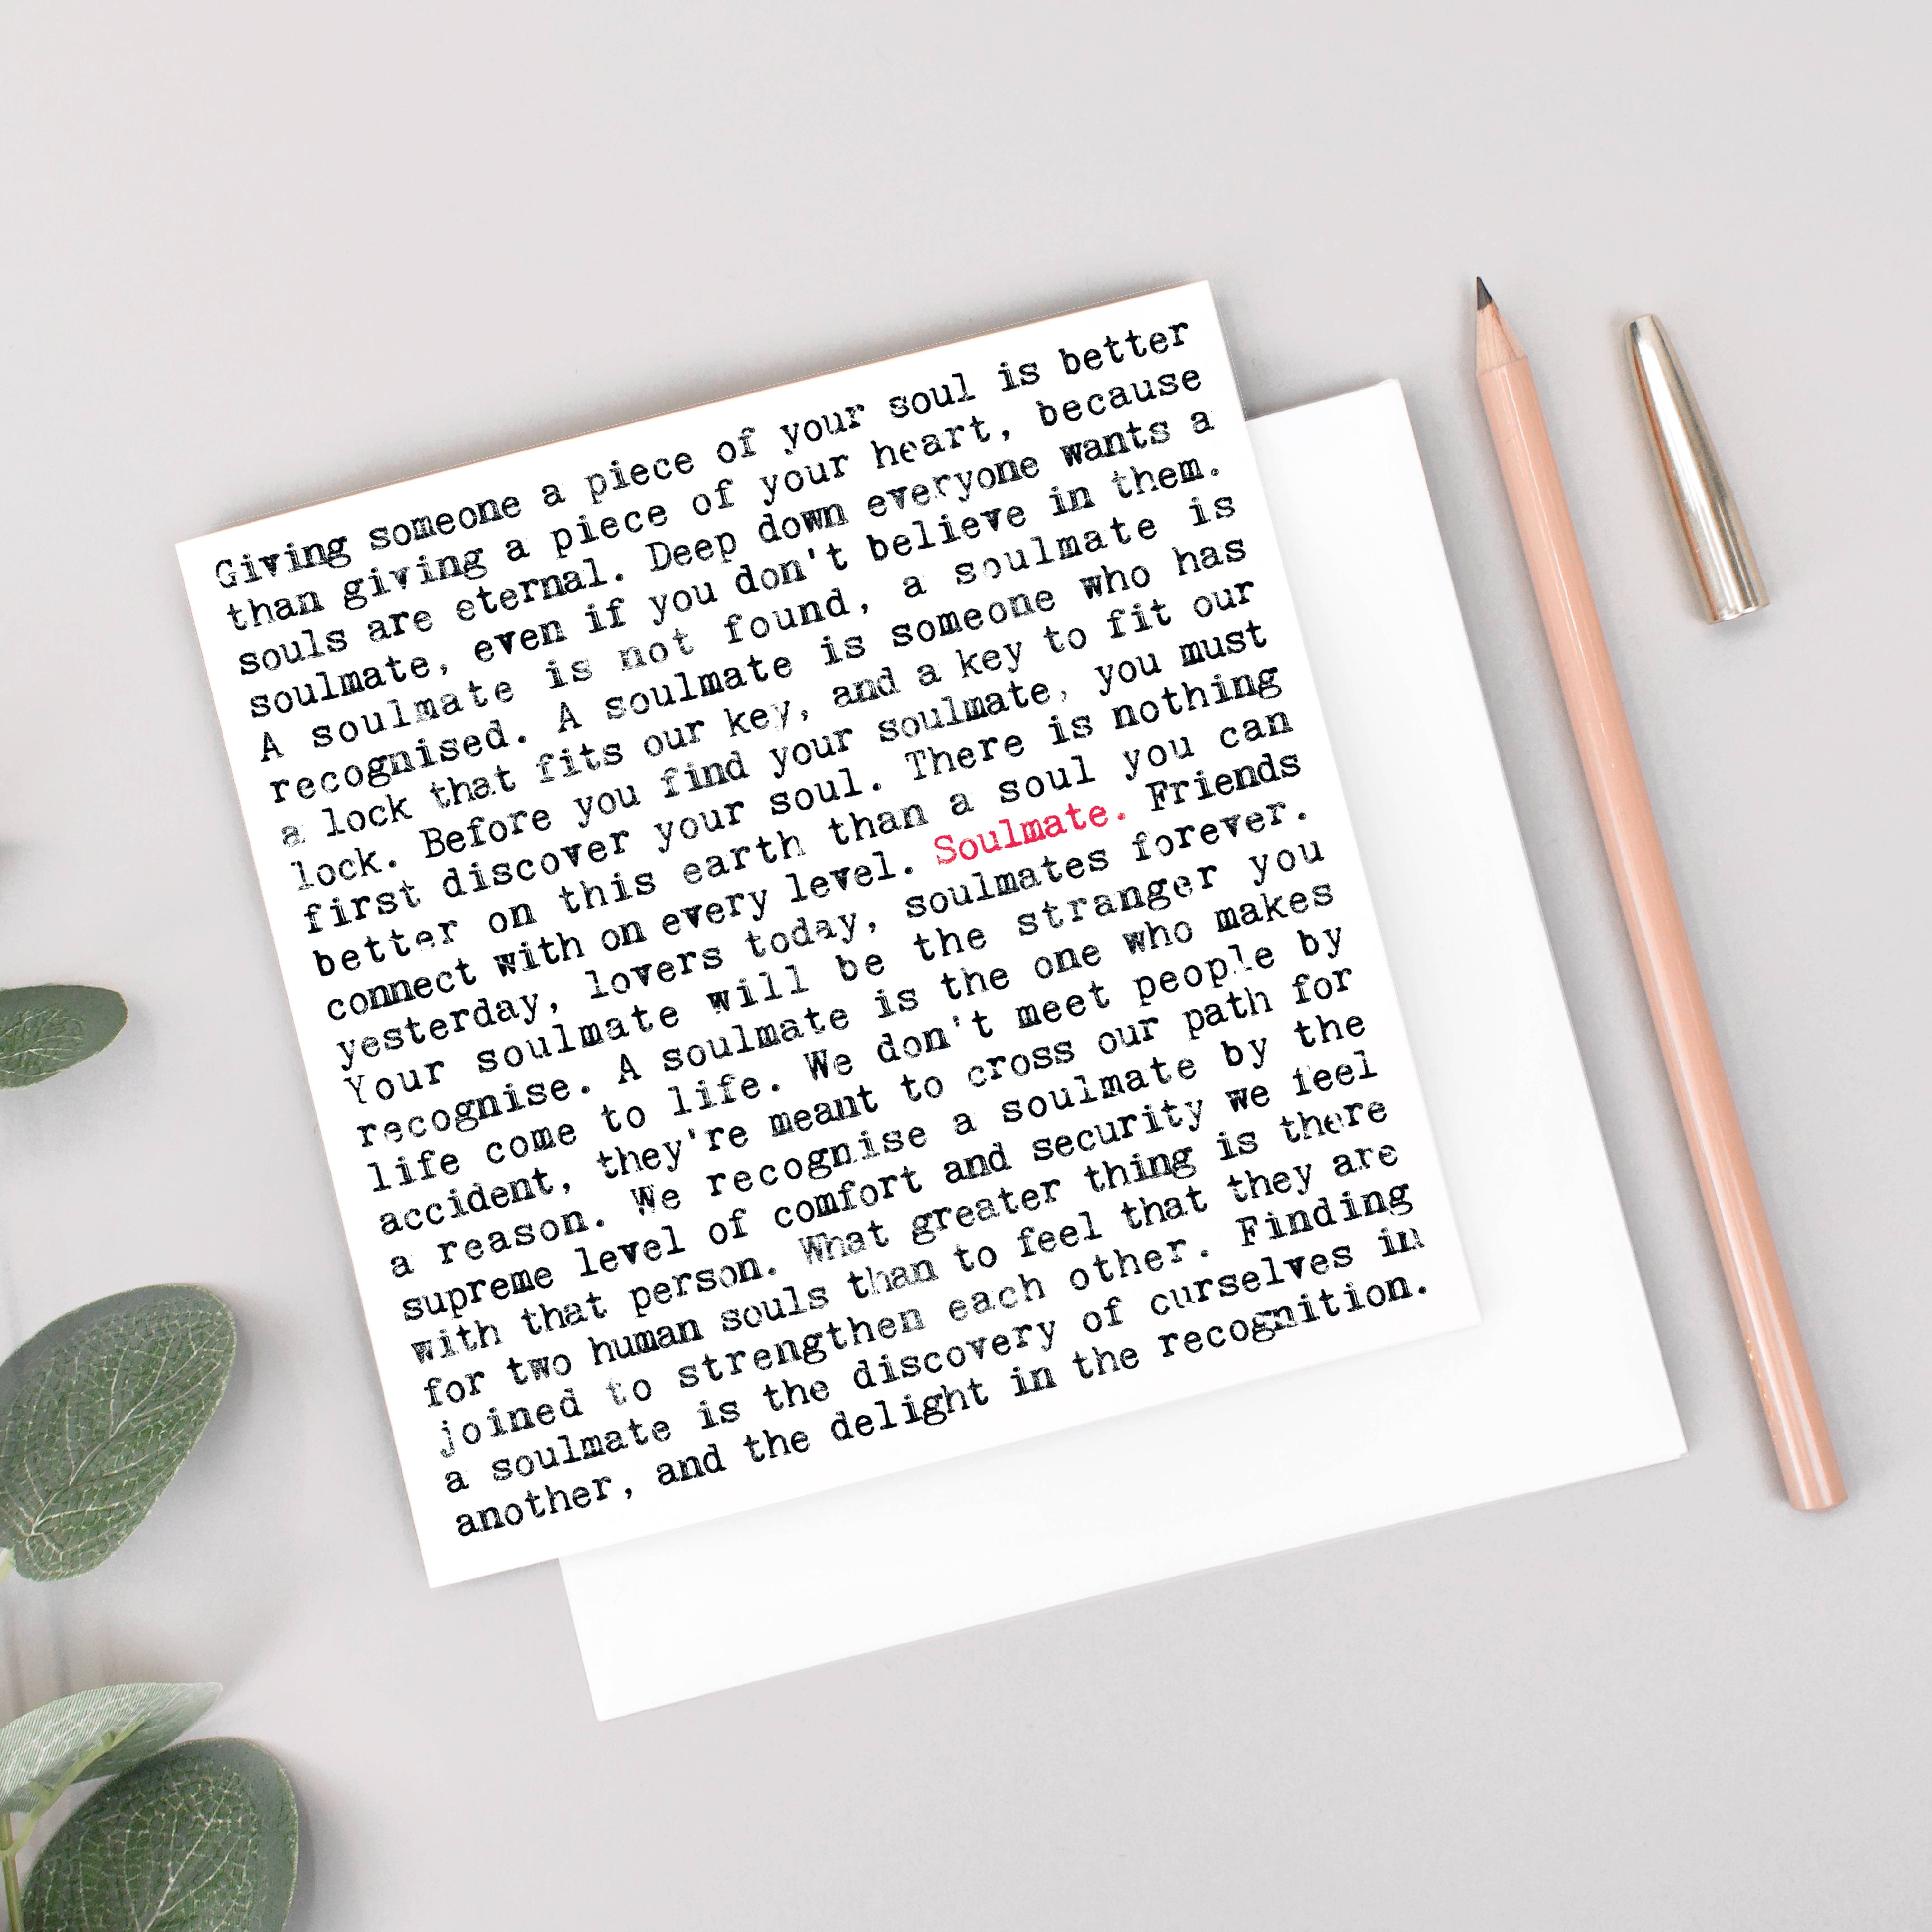 Giving someone a piece of your soul is better
than giving a piece of your heart, because
souls are eternal. Deep down everyone wants a
soulmate, even if you don't believe in them.
A soulmate is not found, a soulmate is
recognised. A soulmate is someone who has
a lock that fits our key, and a key to fit our
lock. Before you find your soulmate, you must
first discover your soul. There is nothing
better on this earth than a soul you can
connect with on every level. Soulmate. Friends
yesterday, lovers today, soulmates forever.
Your soulmate will be the stranger you
recognise. A soulmate is the one who makes
life come to life. We don't meet people by
accident, they're meant to cross our path for
a reason. We recognise a soulmate by the
supreme level of comfort and security we feel
with that person. What greater thing is there
for two human souls than to feel that they are
joined to strengthen each other. Finding
a soulmate is the discovery of ourselves in
another, and the delight in the recognition.